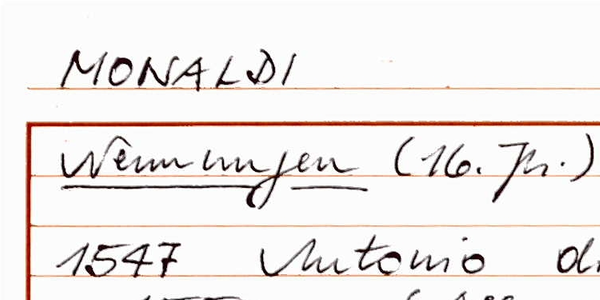 MONALDI
Nennungen (16. Jh.)
1547 Antonio